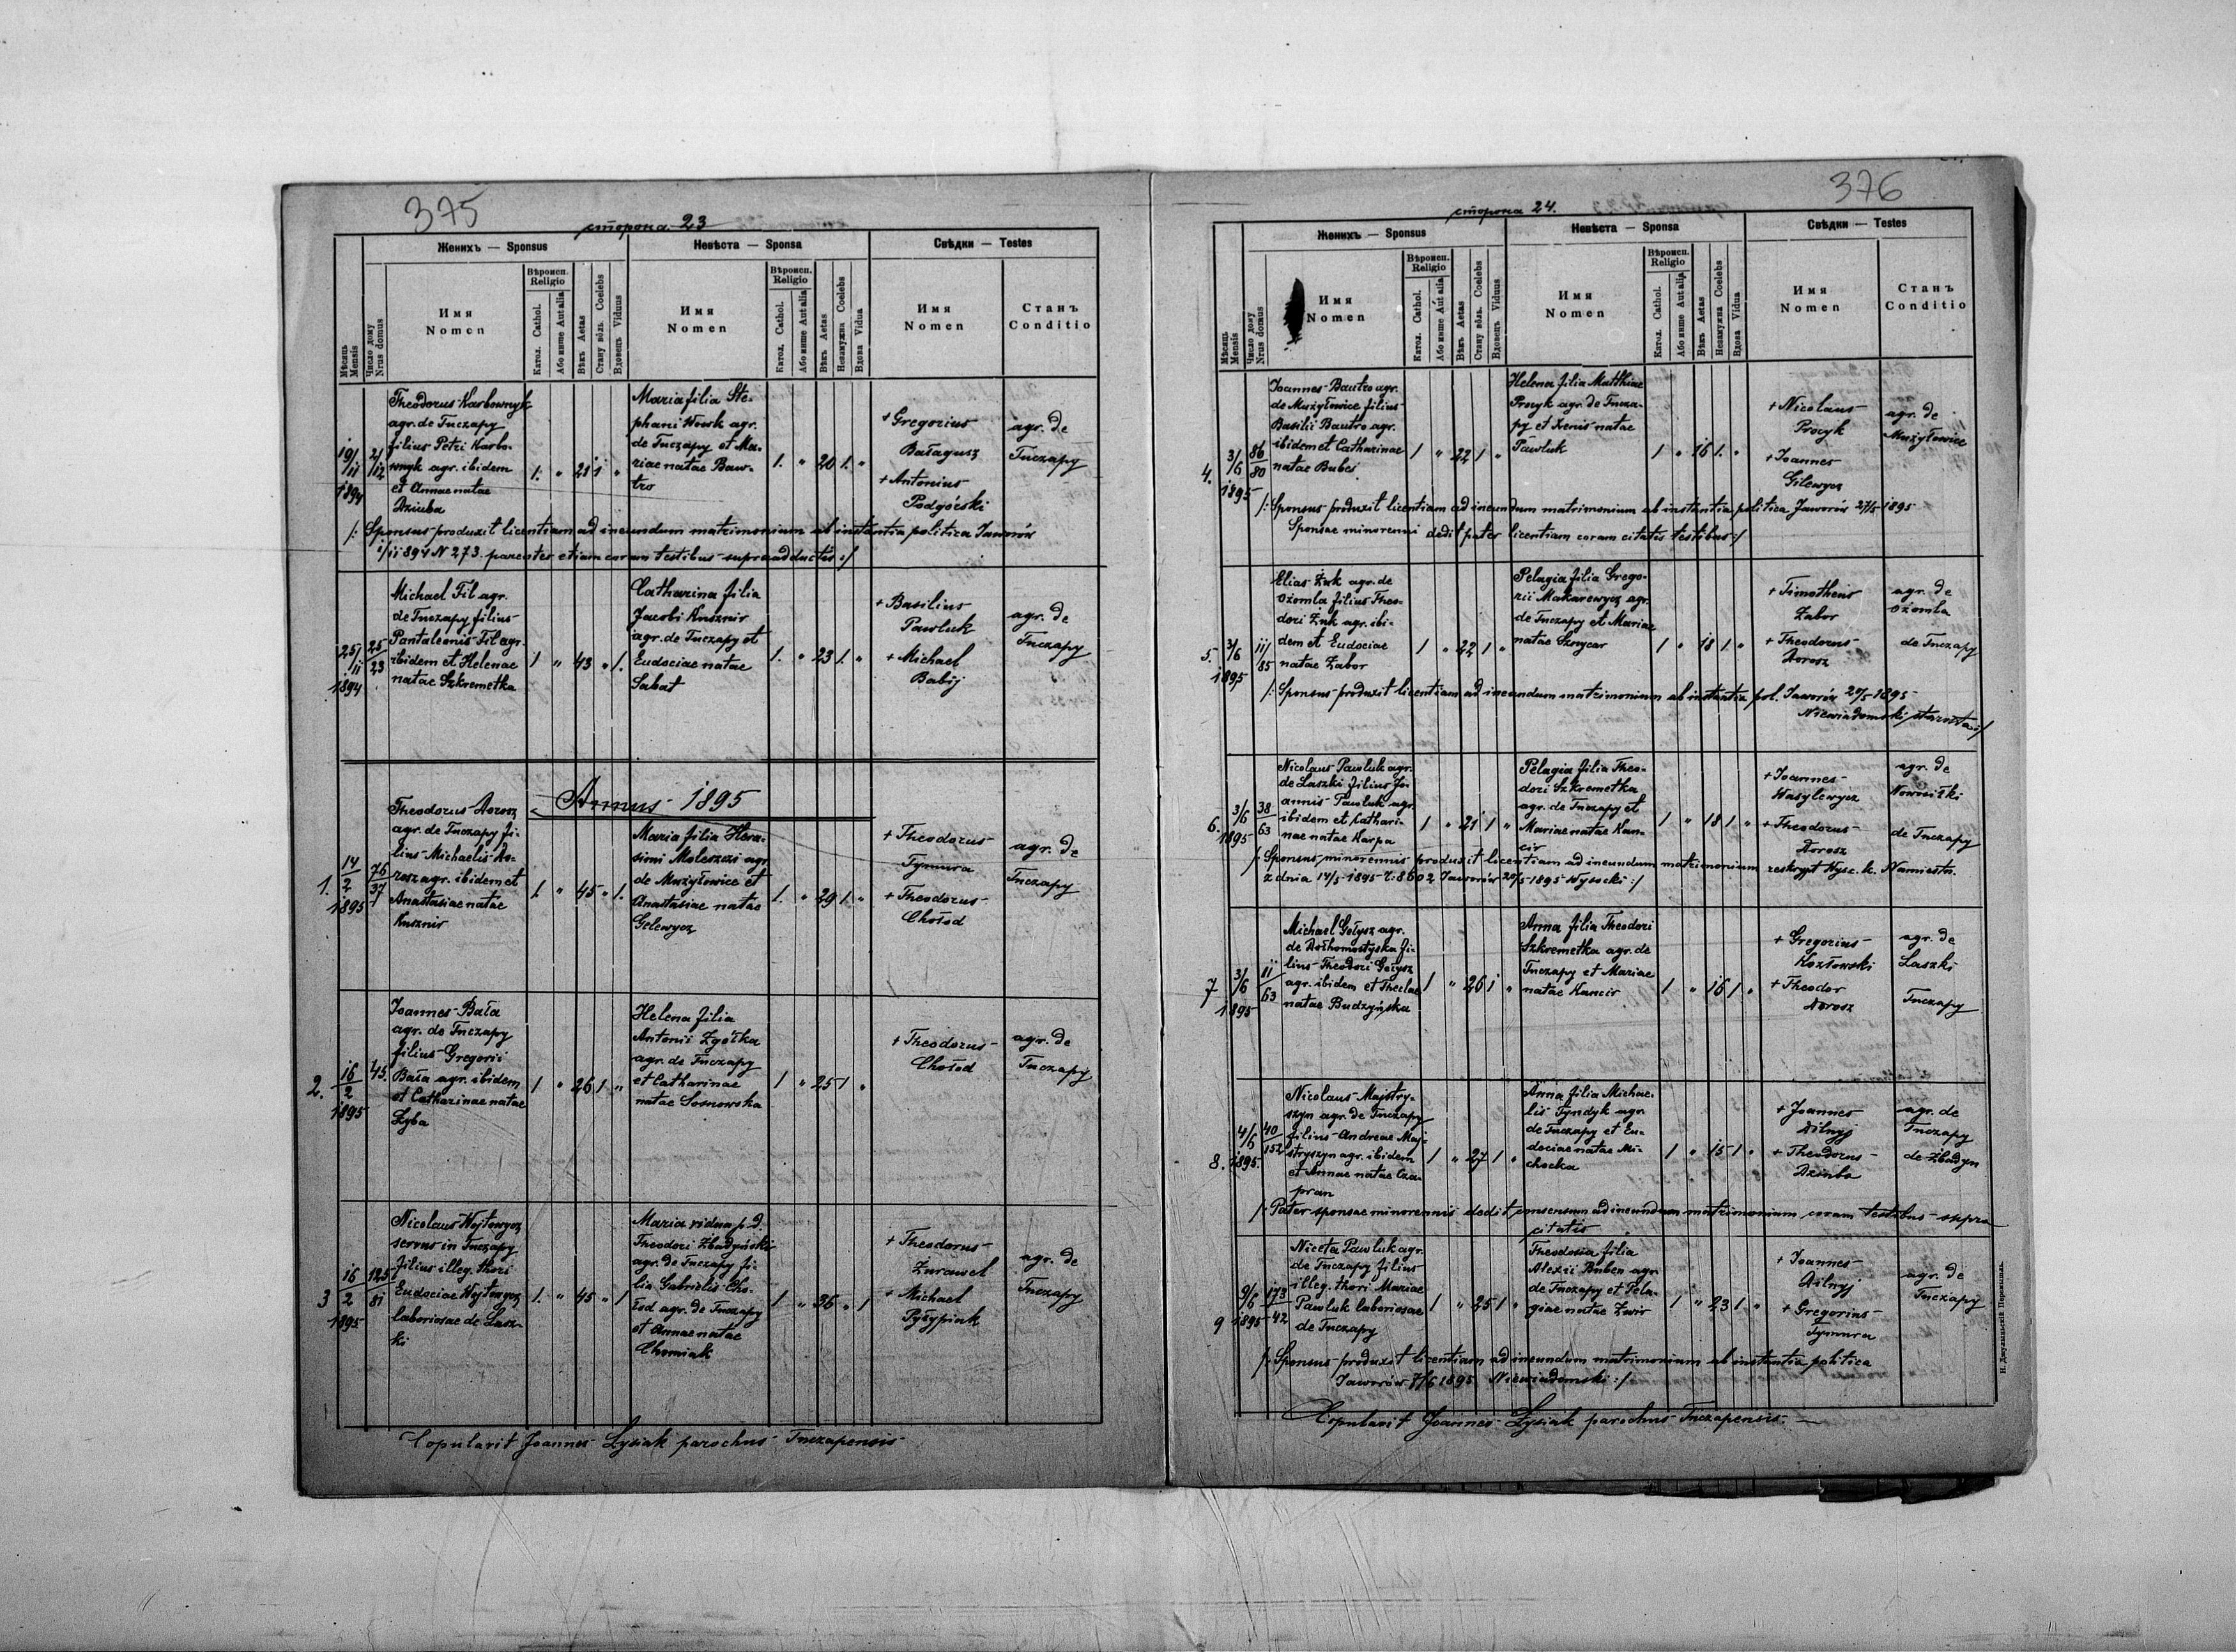 375
сторона 23
Женихъ — Sponsus
Невѣста — Sponsa
Свѣдки — Testes
Мѣсяць Mensis
Число дому Nrus domus
Имя Nomen
Вѣроисп. Religio
Катол. Cathol.
Або инше Aut alia
Вѣкъ Aetas
Стану вôль. Coelebs
Вдовець Viduus
Имя Nomen
Вѣроисп. Religio
Катол. Cathol.
Або инше Aut alia
Вѣкъ Aetas
Незамужна Coelebs
Вдова Vidua
Имя Nomen
Станъ Conditio
19/11 1894
2/112
Theodorus Karbownyk
agr. de Tuczapy
filius Petri Karbo-
wnyk agr. ibidem
et Annae natae
Dziuba
1. " 21 1 "
Maria filia Ste-
phani Wowk agr.
de Tuczapy et Ma-
riae natae Baw-
tro
1. " 20 1. "
+ Gregorius
Bałagusz
+ Antonius
Podgórski
agr. de
Tuczapy
/: Sponsus produxit licentiam ad ineundum matrimonium ab instantia politica Jaworów
1/11 894 N 273. parentes etiam coram testibus supra adductis :/
25/11 1894
25/23
Michael Fil agr.
de Tuczapy filius
Pantaleonis Fil agr.
ibidem et Helenae
natae Szkremetka
1 " 43 " 1.
Catharina filia
Jacobi Kusznir
agr. de Tuczapy et
Eudociae natae
Sabat
1. " 23 1. "
+ Basilius
Pawluk
+ Michael
Babij
agr. de
Tuczapy
Annus 1895
1.
14/2 1895
76/37
Theodorus Dorosz
agr. de Tuczapy fi-
lius Michaelis Do-
rosz agr. ibidem et
Anastasiae natae
Kusznir
1. " 45 " 1.
Maria filia Hera-
simi Moleszczi agr.
de Mużyłowice et
Anastasiae natae
Gelewycz
1. " 29 1. "
+ Theodorus
Tymura
+ Theodorus
Chołod
agr. de
Tuczapy
2.
16/2 1895
45.
Joannes Bała
agr. de Tuczapy
filius Gregorii
Bała agr. ibidem
et Catharinae natae
Zyba
1 " 26 1 "
Helena filia
Antonii Zgółka
agr. de Tuczapy
et Catharinae
natae Sosnowska
1 " 25 1 "
+ Theodorus
Chołod
agr. de
Tuczapy
3
16/2 1895
125/81
Nicolaus Wojtowycz
servus in Tuczapy
filius illeg. thori
Eudociae Wojtowycz
laboriosae de Lasz-
ki
1. " 45 " 1
Maria vidua p. d.
Theodori Zbadyński
agr. de Tuczapy fi-
lia Gabrielis Cho-
łod agr. de Tuczapy
et Annae natae
Chomiak
1 " 36 " 1
+ Theodorus
Żurawel
+ Michael
Pyłypiak
agr. de
Tuczapy
Copulavit Joannes Łysiak parochus Tuczapensis
376
сторона 24.
Женихъ — Sponsus
Невѣста — Sponsa
Свѣдки — Testes
Мѣсяць Mensis
Число дому Nrus domus
Имя Nomen
Вѣроисп. Religio
Катол. Cathol.
Або инше Aut alia
Вѣкъ Aetas
Стану вôль. Coelebs
Вдовець Viduus
Имя Nomen
Вѣроисп. Religio
Катол. Cathol.
Або инше Aut alia
Вѣкъ Aetas
Незамужна Coelebs
Вдова Vidua
Имя Nomen
Станъ Conditio
4.
3/6 1895
86/80
Joannes Bautro agr.
de Mużyłowice filius
Basilii Bautro agr.
ibidem et Catharinae
natae Bubes
1 " 22 1 "
Helena filia Matthiae
Procyk agr. de Tucza-
py et Xenis natae
Pawluk
1 " 16 1. "
+ Nicolaus
Procyk
+ Joannes
Gilewycz
agr. de
Mużyłowice
/: Sponsus produxit licentiam ad ineundum matrimonium ab instantia politica Jaworów 27/5 1895
Sponsae minorenni dedit pater licentiam coram citatis testibus :/
5.
3/6 1895
111/85
Elias Żuk agr. de
Ożomla filius Theo-
dori Żuk agr. ibi-
dem et Eudociae
natae Zabor
1 " 22 1 "
Pelagia filia Grego-
rii Makarewycz agr.
de Tuczapy et Mariae
natae Sznycar
1 " 18 1 "
+ Timotheus
Zabor
+ Theodorus
Dorosz
agr. de
Ożomla
de Tuczapy
/: Sponsus produxit licentiam ad ineundum matrimonium ab instantia pol. Jaworów 20/5 1895
Niewiadomski starosta :/
6.
3/6 1895
38/63
Nicolaus Pawluk agr.
de Laszki filius Jo-
annis Pawluk agr.
ibidem et Cathari-
nae natae Karpa
1 " 21 1 "
Pelagia filia Theo-
dori Szkremetka
agr. de Tuczapy et
Mariae natae Kan-
cir
1 " 18 1 "
+ Joannes
Wasylewycz
+ Theodorus
Dorosz
agr. de
Nowosiłki
de Tuczapy
/: Sponsus minorennis produxit licentiam ad ineundum matrimonium reskrypt Wys. c. k. Namiestn.
z dnia 14/5 1895 L. 8602 Jaworów 20/5 1895 Wysocki :/
7
3/6 1895
11/63
Michael Gołysz agr.
de Dołhomostyska fi-
lius Theodori Gołysz
agr. ibidem et Theclae
natae Budzyńska
1 " 26 1 "
Anna filia Theodori
Szkremetka agr. de
Tuczapy et Mariae
natae Kancir
1 " 16 1 "
+ Gregorius
Kozłowski
+ Theodor
Dorosz
agr. de
Laszki
Tuczapy
8.
4/6 1895
40/152
Nicolaus Majstry-
szyn agr. de Tuczapy
filius Andreae Maj-
stryszyn agr. ibidem
et Annae natae Cza-
pran
1 " 27 1 "
Anna filia Michae-
lis Tyndyk agr.
de Tuczapy et Eu-
dociae natae Mi-
chocka
1 " 15 1 "
+ Joannes
Dilnyj
+ Theodorus
Dziuba
agr. de
Tuczapy
de Zbadyn
/: Pater sponsae minorennis dedit consensum ad ineundum matrimonium coram testibus supra
citatis
9
9/6 1895
173/42
Niceta Pawluk agr.
de Tuczapy filius
illeg. thori Mariae
Pawluk laboriosae
de Tuczapy
1 " 25 1 "
Theodosia filia
Alexii Buben agr.
de Tuczapy et Pela-
giae natae Zwir
1 " 23 1 "
+ Joannes
Dilnyj
+ Gregorius
Tymura
agr. de
Tuczapy
/: Sponsus produxit licentiam ad ineundum matrimonium ab instantia politica
Jaworów 7/6 1895 Niewiadomski :/
Copulavit Joannes Łysiak parochus Tuczapensis
Н. Джулиньскій Перемышль.